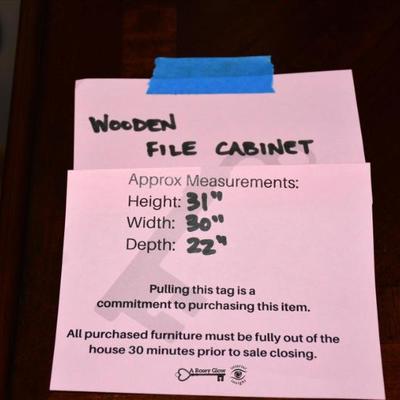 WOODEN
FILE CABINET
Approx Measurements:
Height: 31"
Width: 30"
Depth: 22"
Pulling this tag is a
commitment to purchasing this item.
All purchased furniture must be fully out of the
house 30 minutes prior to sale closing.
A Rosey Glow